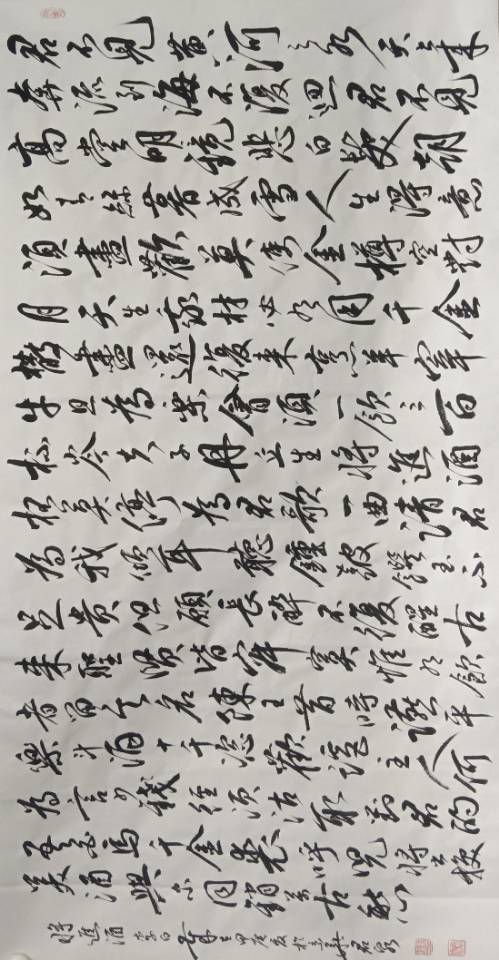 君不見黃河之水天上來
奔流到海不復迴君不見
高堂明鏡悲白髮朝
如青絲暮成雪人生得意
須盡歡莫使金樽空對
月天生我材必有用千金
散盡還復來烹羊宰
牛且為樂會須一飲三百
杯岑夫子丹丘生將進酒
杯莫停為君歌一曲請君
為我傾耳聽鐘鼓饌玉不
足貴但願長醉不復醒古
來聖賢皆寂寞惟有飲
者留其名陳王昔時宴平
樂斗酒十千恣歡謔主人何
為言少錢徑須沽取對君酌
五花馬千金裘呼兒將出換
美酒與爾同銷萬古愁
將進酒 李白